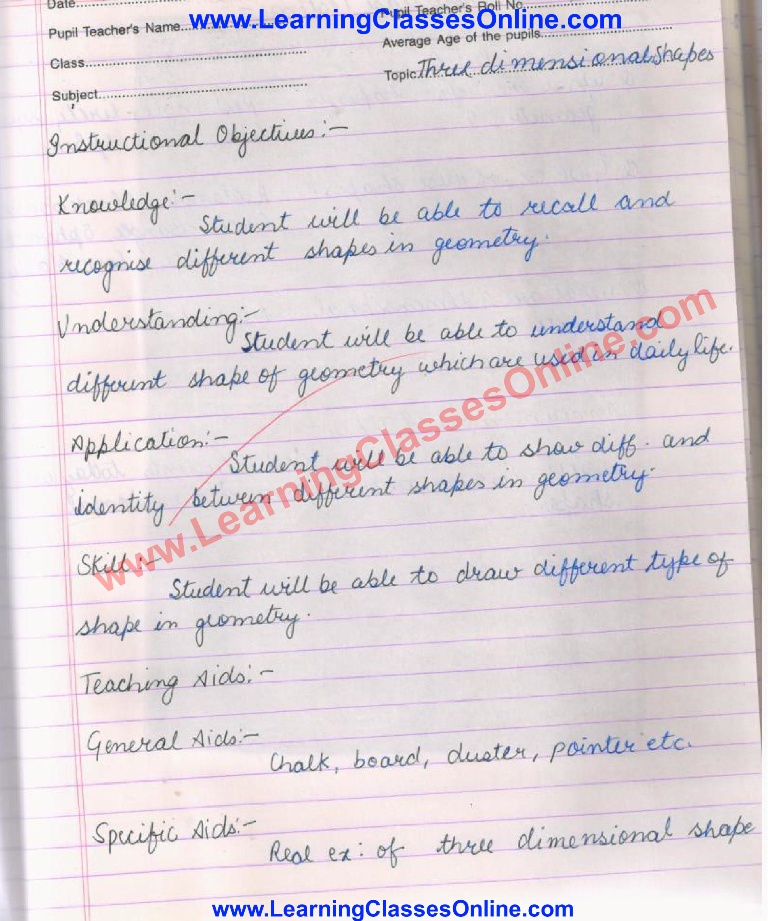 www.LearningClassesOnline.com
Date
Pupil Teacher's Roll No.
Pupil Teacher's Name
Average Age of the pupils
Class
Topic Three dimensional Shapes
Subject
Instructional Objectives:-
Knowledge:-
Student will be able to recall and
recognise different shapes in geometry.
Understanding:-
Student will be able to understand
different shape of geometry which are used in daily life.
Application:-
Student will be able to show diff. and
identity between different shapes in geometry.
www.LearningClassesOnline.com
Skill:-
Student will be able to draw different type of
shape in geometry.
Teaching Aids:-
General Aids:-
Chalk, board, duster, pointer etc.
Specific Aids:-
Real ex: of three dimensional shape
www.LearningClassesOnline.com